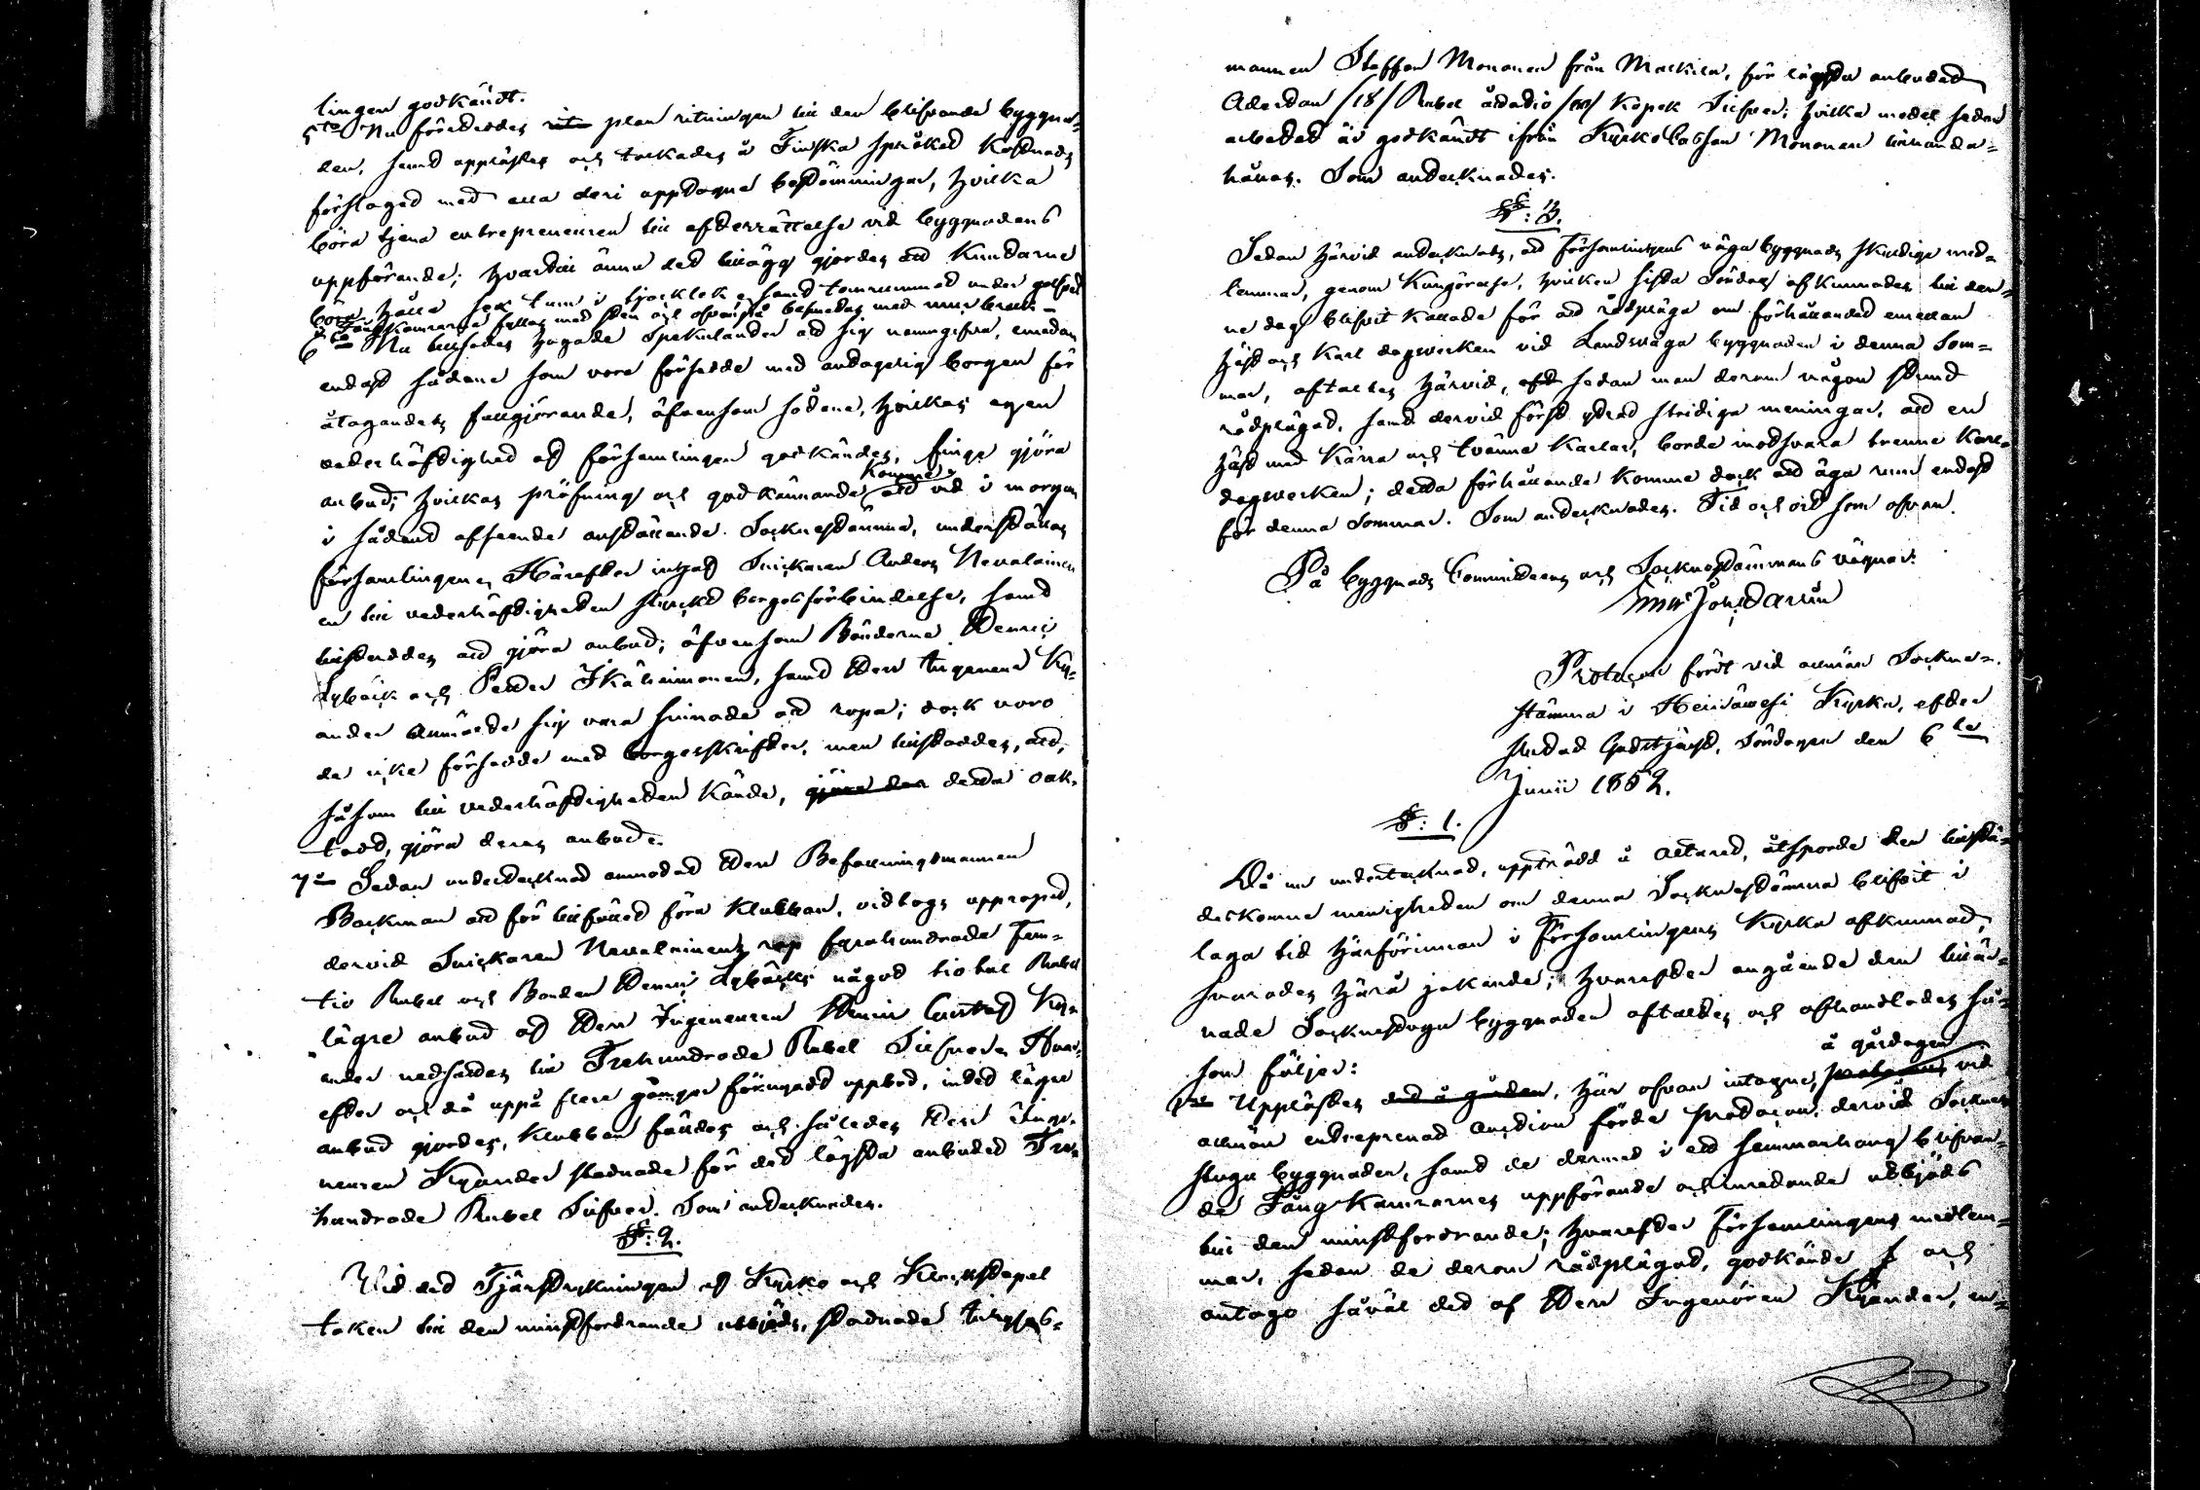 lingen godkändt.
5to Nu företeddes plan ritningen till den blifvande byggna-
den, samt upplästes och tolkades å Finska språket Kostnads
förslaget med alla deri upptagne bestämningar, hvilka
böra tjena entrepreneuren till efterrättelse vid byggnadens
uppförande; hvartill ännu det tillägg gjordes att Rundarne
böra hålla sex tum i tjocklek samt tomrummet under golfvet
i Fångkamrarne fyllas med sten och ofvanpå betäckes med murbruk
6to Nu tillsades hugade Spekulanter att sig namngifva, emedan
endast sådane som vore försedde med antaglig borgen för
åtagandets fullgjörande, äfvensom sådane, hvilkas egen
vederhäftighet af församlingen godkändes, finge gjöra
anbud; hvilkas pröfning och godkännande komme att vid i morgon
i sådant afseende anställande Socknestämma, underställas
församlingen. Härefter intog Snickaren Anders Nevalainen
en till vederhäftigheten styrkt borgesförbindelse, samt
tillstaddes att gjöra anbud; äfvensom Bönderne Henric
Lybäck och Petter Ikäheimonen, samt Herr Ingenieur Ky-
ander anmälde sig vara sinnade att ropa; dock voro
de icke försedde med borgesskrifter, men tillstaddes, att,
såsom till vederhäftigheten kände, gjöra der detta oak-
tadt, gjöra deras anbud.
7de Sedan undertecknad anmodat Herr Befallningsmannen
Backman att för tillfället föra klubban, vidtogs uppropet,
dervid Snickaren Nevalainens rop fyrahundrade Fem-
tio Rubel och Bonden Henric Lybäcks något tiotal Rubel
lägre anbud af Herr Ingeneuren Henric Gustaf Ky-
ander nedsattes till Trehundrade Rubel Silfver. Hvar-
efter och då uppå flere gånger förnyadt uppbud, intet lägre
anbud gjordes, klubban fälldes och således Herr Inge-
neuren Kyander stadnade för det lägsta anbudet Tre-
hundrade Rubel Silfver. Som antecknades.
§: 2.
Vid att Tjärstrykningen af Kyrko och Klockstapel
taken till den minstfordrande utbjöds, stadnade
mannen Staffan Mononen från för lägsta anbudet
Aderton /18/ Rubel åttatio /80/ Kopek Silfver; hvilka medel sedan
arbetet är godkändt ifrån Kyrko Cassan Mononen tillhanda-
hålles. Som antecknades.
§: 3.
Sedan härvid antecknats, att Församlingens väga byggnads skyldige med-
lemmar, genom Kungörelse, hvilken sista Söndag afkunnades till den-
ne dag blifvit kallade för att rådpläga om förhållandet emellan
häst och karl dagsverken vid Landsväga byggnaden i denna Som-
mar, aftaltes härvid, sedan man derom någon stund
rådplägat, samt dervid först yttrat stridiga meningar, att en
häst med Kärra och tvänne Karlar, borde motsvara trenne Karl-
dagsverken; detta förhållande komme dock att äga rum endast
för denna Sommar. Som antecknades. Tid och ort som ofvan.
På byggnads Committeens och Socknestämmans vägnar:
Protocoll fördt vid allmän Sockne-
stämma i Heinäwesi Kyrka, efter
slutad Gudstjenst, Söndagen den 6te
Junii 1852.
§: 1.
Då nu undertecknad, uppträdd å altaret, åtsporde den tillstä-
deskomne menigheten om denna Socknestämma blifvit i
laga tid härförinnan i Församlingens Kyrka afkunnad,
svarades härå jakande; hvarefter angående den tillär-
nade Sockenstuga byggnaden aftaltes och afhandlades så-
som följer:
å gårdagen
1mo Upplästes det å gården, här ofvan intagne, vid
allmän entreprenad auction förde protocoll, dervid Socken-
stuga byggnaden, samt de dermed i ett sammanhang blifvan-
de Fång Kamrarnes uppförande och inredande utbjöds
till den minstfordrande; hvarefter Församlingens medlem-
mar, sedan de derom rådplägat, godkände och
antogo såväl det af Herr Ingenören Kyander, en-